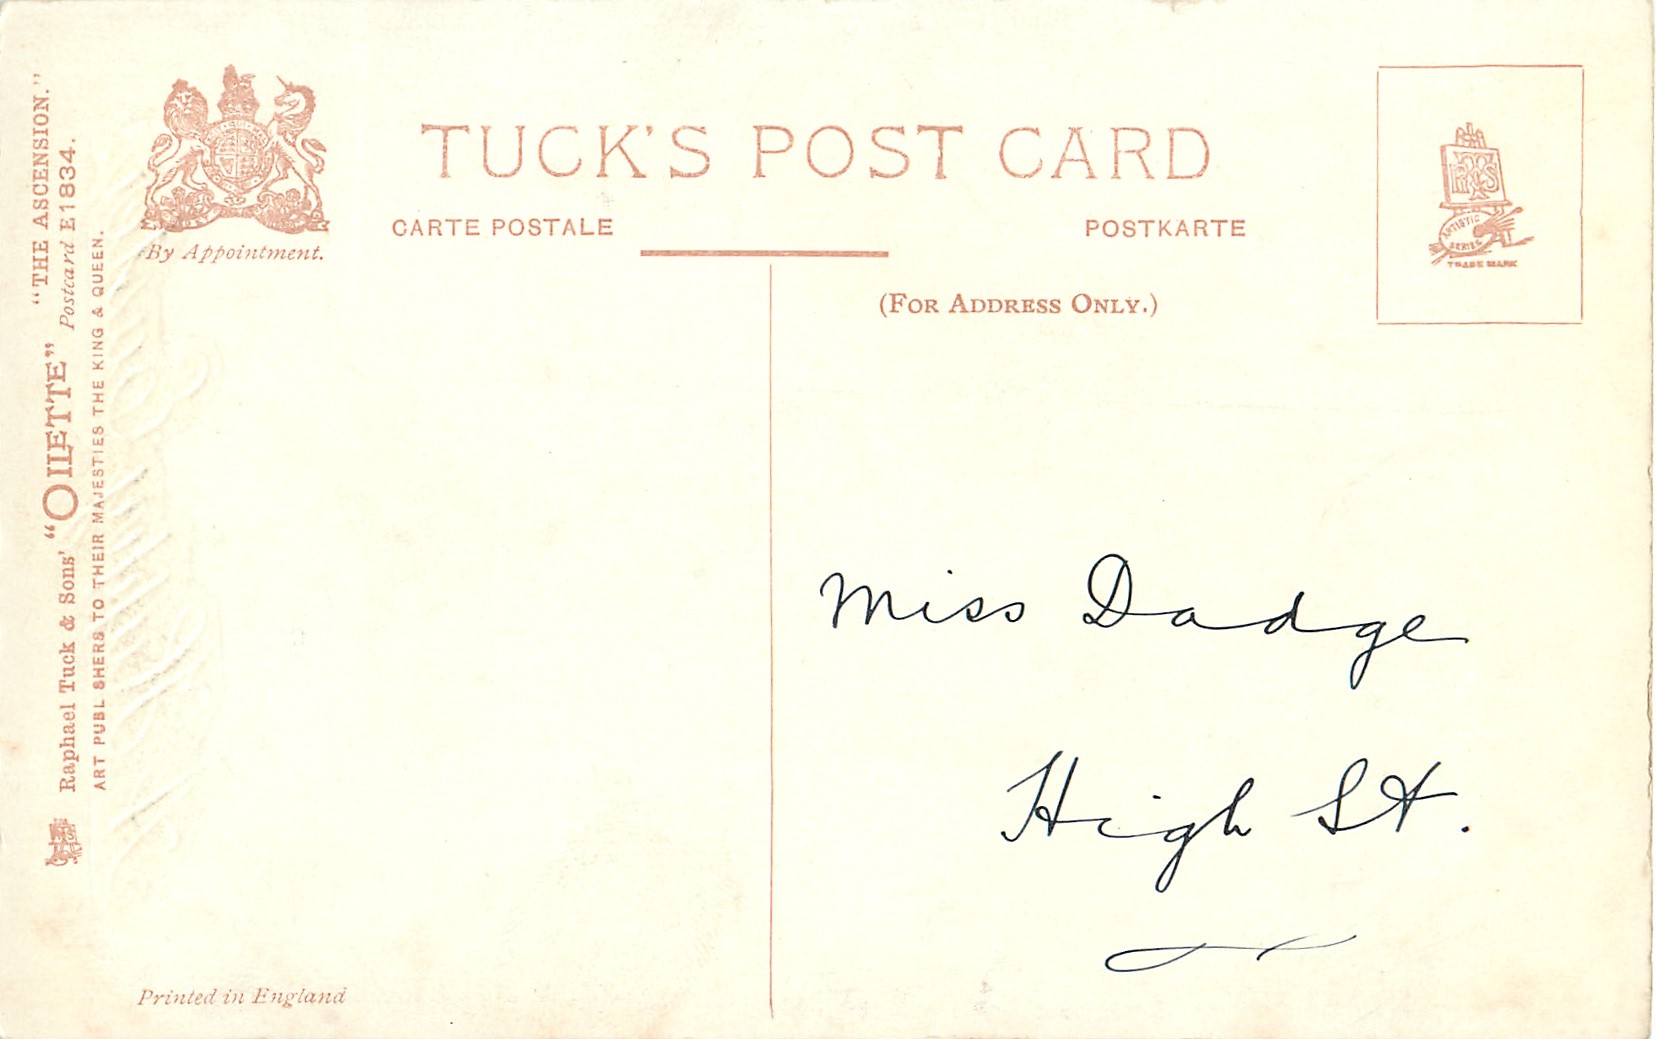 "THE ASCENSION."
Postcard E 1834.
Raphael Tuck & Sons' "OILETTE"
ART PUBL SHERS TO THEIR MAJESTIES THE KING & QUEEN.
By Appointment.
TUCK'S POST CARD
CARTE POSTALE
POSTKARTE
(FOR ADDRESS ONLY.)
ARTISTIC
SERIES
TRADE MARK
Miss Dadge
High St.
Printed in England